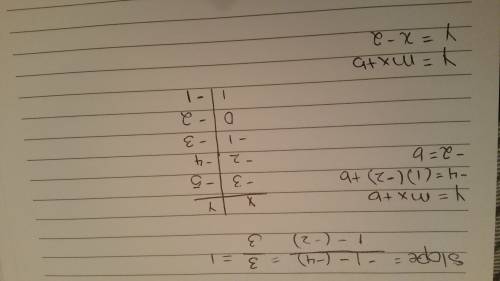 Slope = -1-(-4) / 1-(-2) = 3/3 = 1
y = mx+b
-4=(1)(-2)+b
-2=b
x | y
-3 | -5
-2 | -4
-1 | -3
0 | -2
1 | -1
y = mx+b
y = x-2